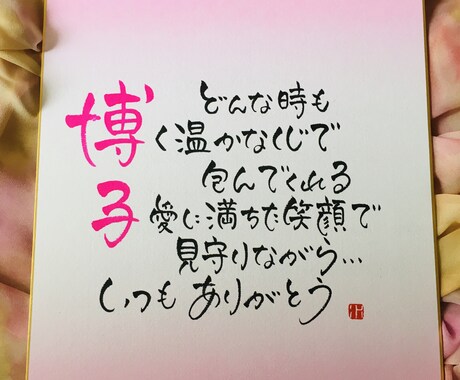 博子
どんな時も
く温かな心で
包んでくれる
愛に満ちた笑顔で
見守りながら…
いつもありがとう